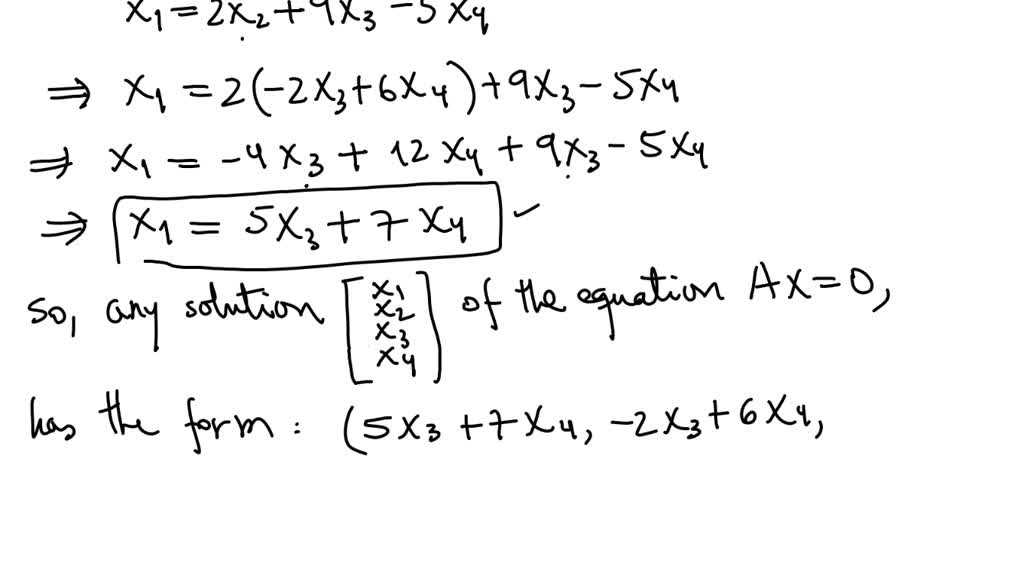 x₁ = 2x₂ + 9x₃ - 5x₄
⇒ x₁ = 2(-2x₃ + 6x₄) + 9x₃ - 5x₄
⇒ x₁ = -4x₃ + 12x₄ + 9x₃ - 5x₄
⇒ x₁ = 5x₃ + 7x₄ ✓
so, any solution [x₁ x₂ x₃ x₄] of the equation Ax = 0,
has the form : (5x₃ + 7x₄, -2x₃ + 6x₄,